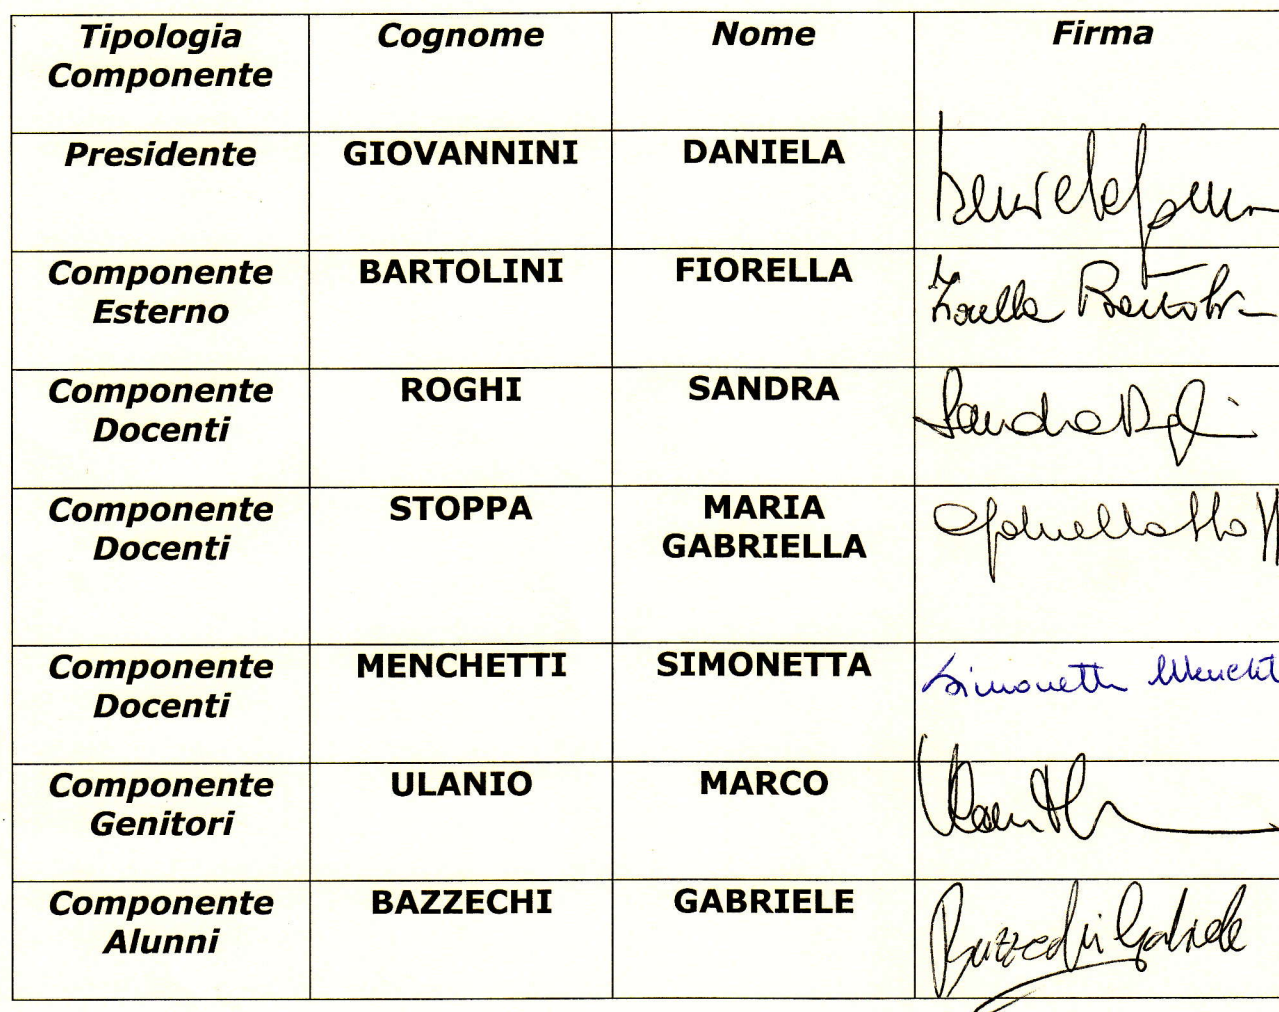 Tipologia Componente Cognome Nome Firma
Presidente GIOVANNINI DANIELA
Componente Esterno BARTOLINI FIORELLA Fiorella Bartolini
Componente Docenti ROGHI SANDRA Sandra Roghi
Componente Docenti STOPPA MARIA GABRIELLA Gabriella Stopp
Componente Docenti MENCHETTI SIMONETTA Simonetta Menchet
Componente Genitori ULANIO MARCO
Componente Alunni BAZZECHI GABRIELE Bazzechi Gabriele